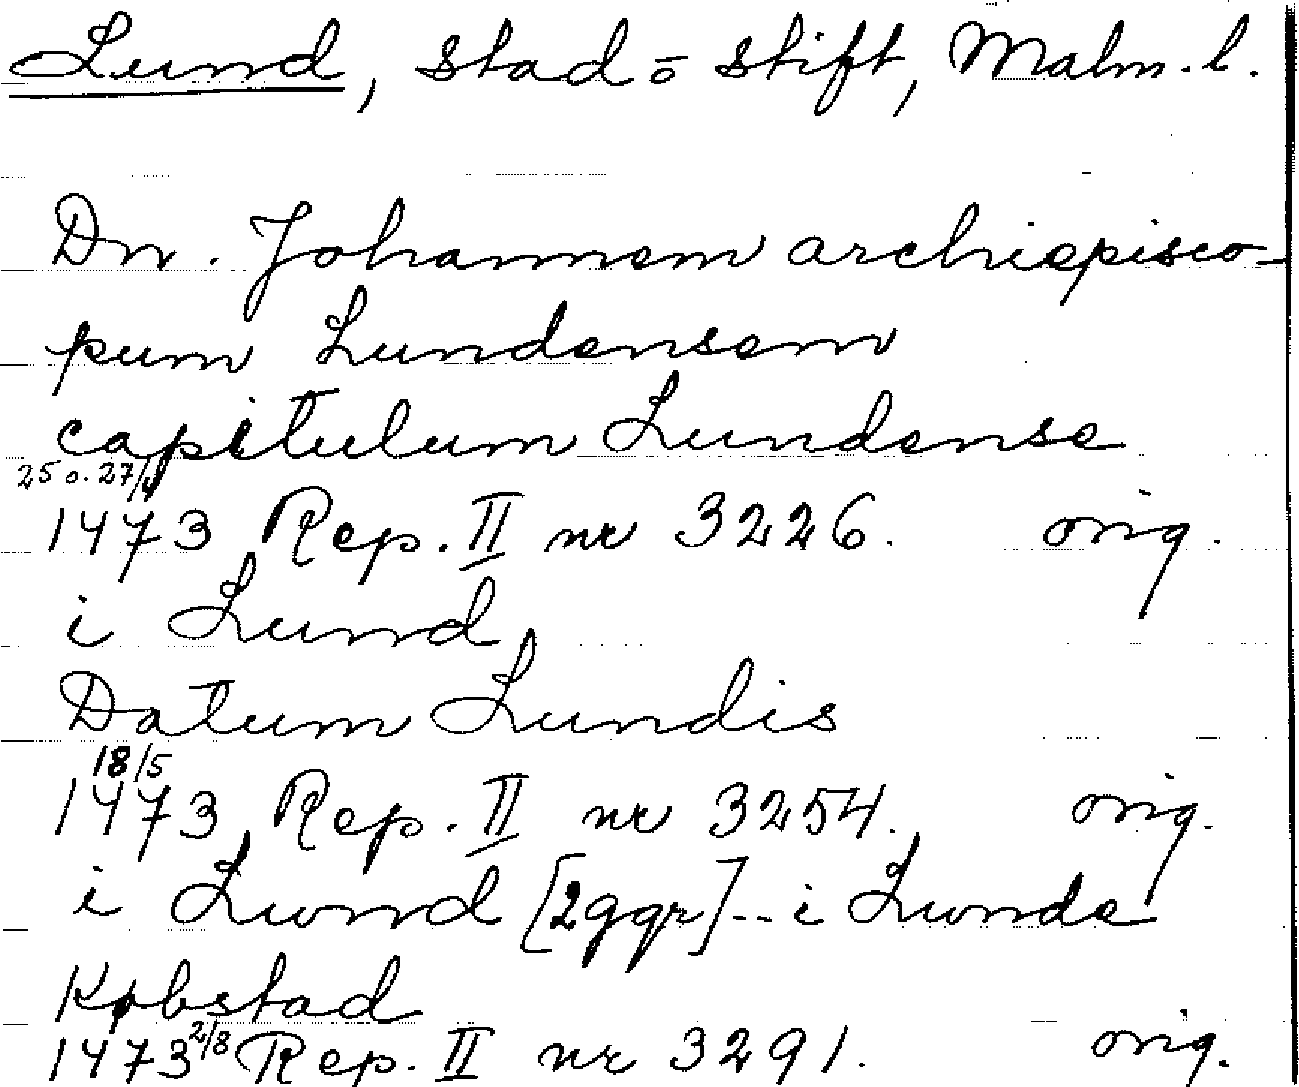 Lund, stad o stift, Malm. l.
Dn. Johannem archiepisco-
pum Lundensem
capitulum Lundense
25 o. 27/4
1473 Rep. II nr 3226. orig.
i Lund
Datum Lundis
18/5
1473 Rep. II nr 3254. orig.
i Lwnd [2 ggr] -- i Lwnde
Købstad
1473 2/8 Rep. II nr 3291. orig.